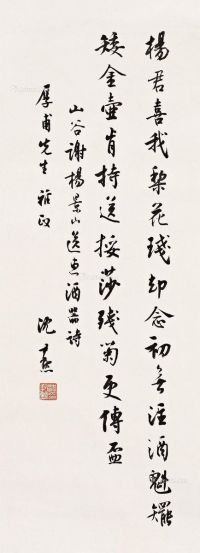 楊君喜我梨花琖却念初無注酒魁矲
矮金壺肯持送挼莎殘菊更傳盃
山谷謝楊景山送惠酒器詩
厚甫先生雅政
沈尹默